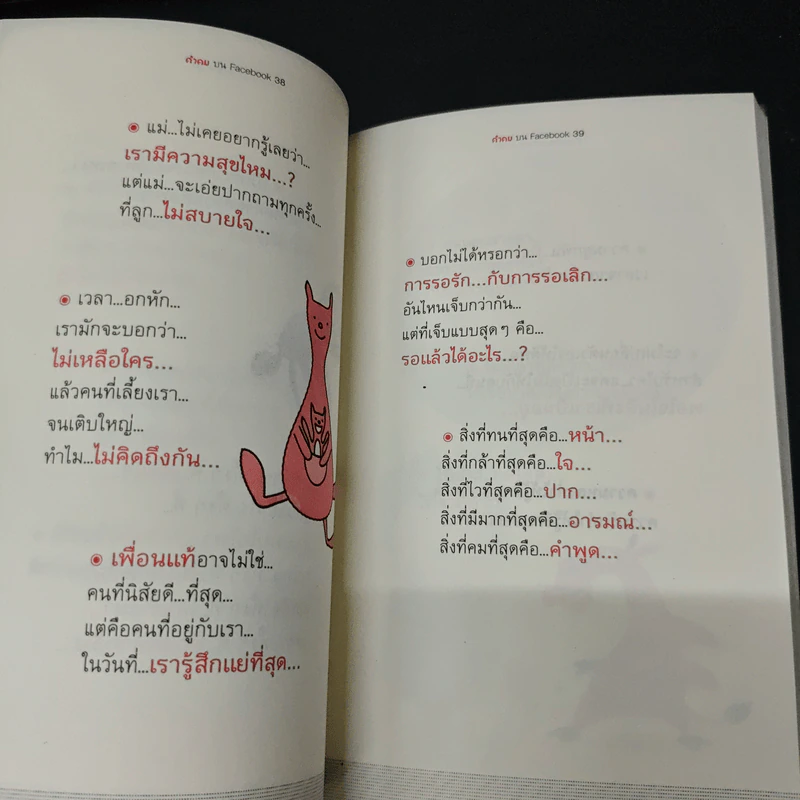 คำคม บน Facebook 38
แม่...ไม่เคยอยากรู้เลยว่า...
เรามีความสุขไหม...?
แต่แม่...จะเอ่ยปากถามทุกครั้ง...
ที่ลูก...ไม่สบายใจ...
เวลา...อกหัก...
เรามักจะบอกว่า...
ไม่เหลือใคร...
แล้วคนที่เลี้ยงเรา...
จนเติบใหญ่...
ทำไม...ไม่คิดถึงกัน...
เพื่อนแท้อาจไม่ใช่...
คนที่นิสัยดี...ที่สุด...
แต่คือคนที่อยู่กับเรา...
ในวันที่...เรารู้สึกแย่ที่สุด...
คำคม บน Facebook 39
บอกไม่ได้หรอกว่า...
การรอรัก...กับการรอเลิก...
อันไหนเจ็บกว่ากัน...
แต่ที่เจ็บแบบสุดๆ คือ...
รอแล้วได้อะไร...?
สิ่งที่ทนที่สุดคือ...หน้า...
สิ่งที่กล้าที่สุดคือ...ใจ...
สิ่งที่ไวที่สุดคือ...ปาก...
สิ่งที่มีมากที่สุดคือ...อารมณ์...
สิ่งที่คมที่สุดคือ...คำพูด...